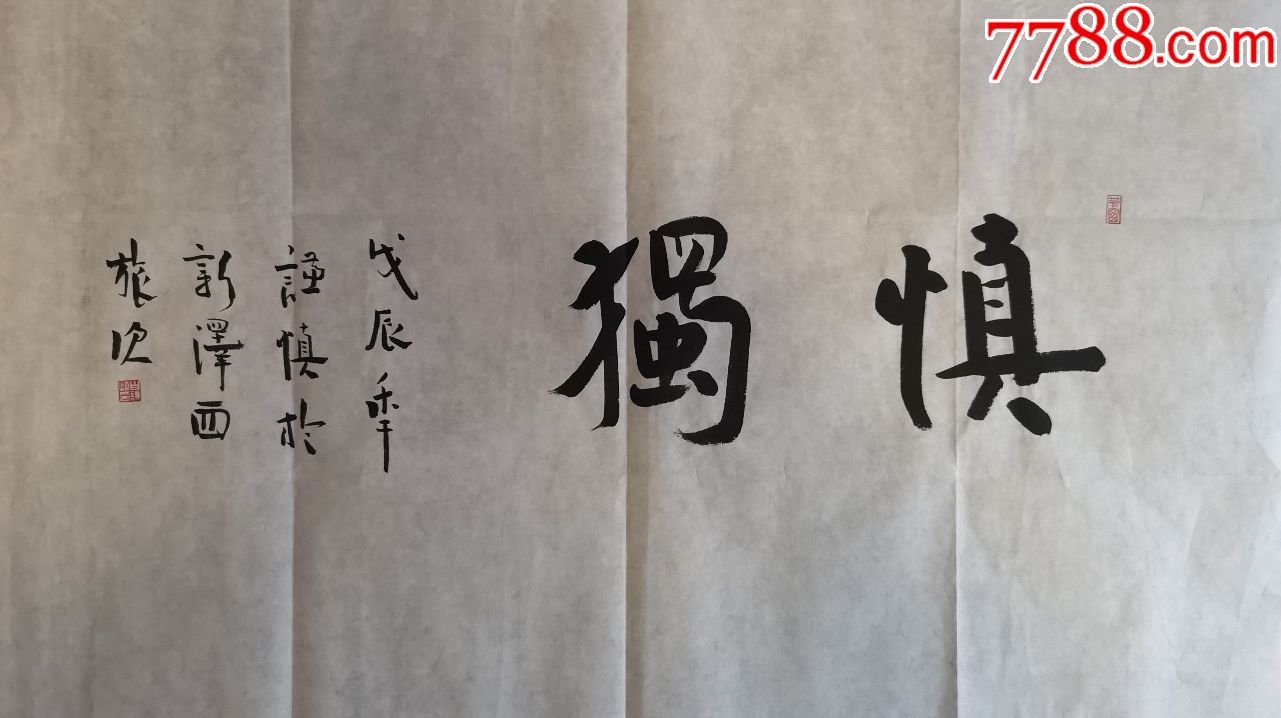 7788.com
慎獨
戊辰年
謹慎於
新澤西
旅次